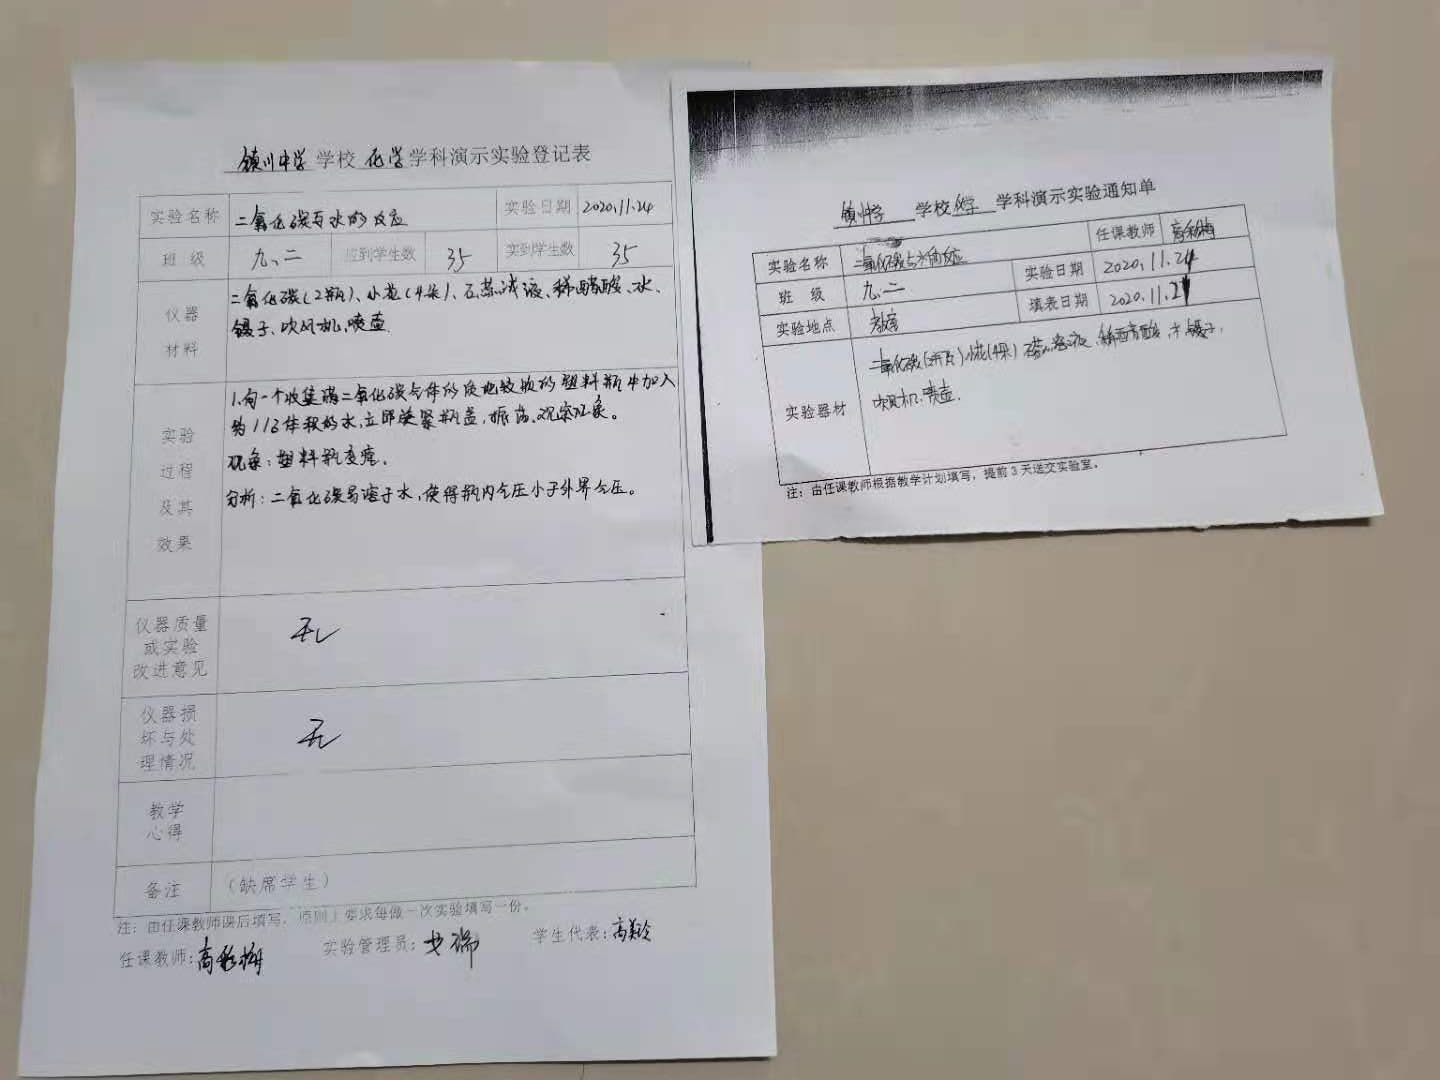 镇川中学 学校 化学 学科演示实验登记表
实验名称 二氧化碳与水的反应 实验日期 2020.11.24
班 级 九.二 应到学生数 35 实到学生数 35
仪器 材料
二氧化碳(2瓶)、小花(4朵)、石蕊试液、稀醋酸、水、
镊子、吹风机、喷壶
实验 过程 及其 效果
1.向一个收集满二氧化碳气体的质地较软的塑料瓶中加入
约1/3体积的水,立即旋紧瓶盖,振荡、观察现象。
现象:塑料瓶变瘪.
分析:二氧化碳易溶于水,使得瓶内气压小于外界气压。
仪器质量
或实验
改进意见
无
仪器损
坏与处
理情况
无
教学
心得
备注 (缺席学生)
注:由任课教师课后填写,原则上要求每做一次实验填写一份。
任课教师: 高彩梅 实验管理员: 学生代表:高美玲
镇川中学 学校 化学 学科演示实验通知单
实验名称 二氧化碳与水的反应 任课教师 高彩梅
班 级 九.二 实验日期 2020.11.24
实验地点 教室 填表日期 2020.11.21
实验器材
二氧化碳(2瓶)小花(4朵) 石蕊溶液、稀醋酸、水、镊子、
吹风机.喷壶.
注:由任课教师根据教学计划填写,提前3天送交实验室。